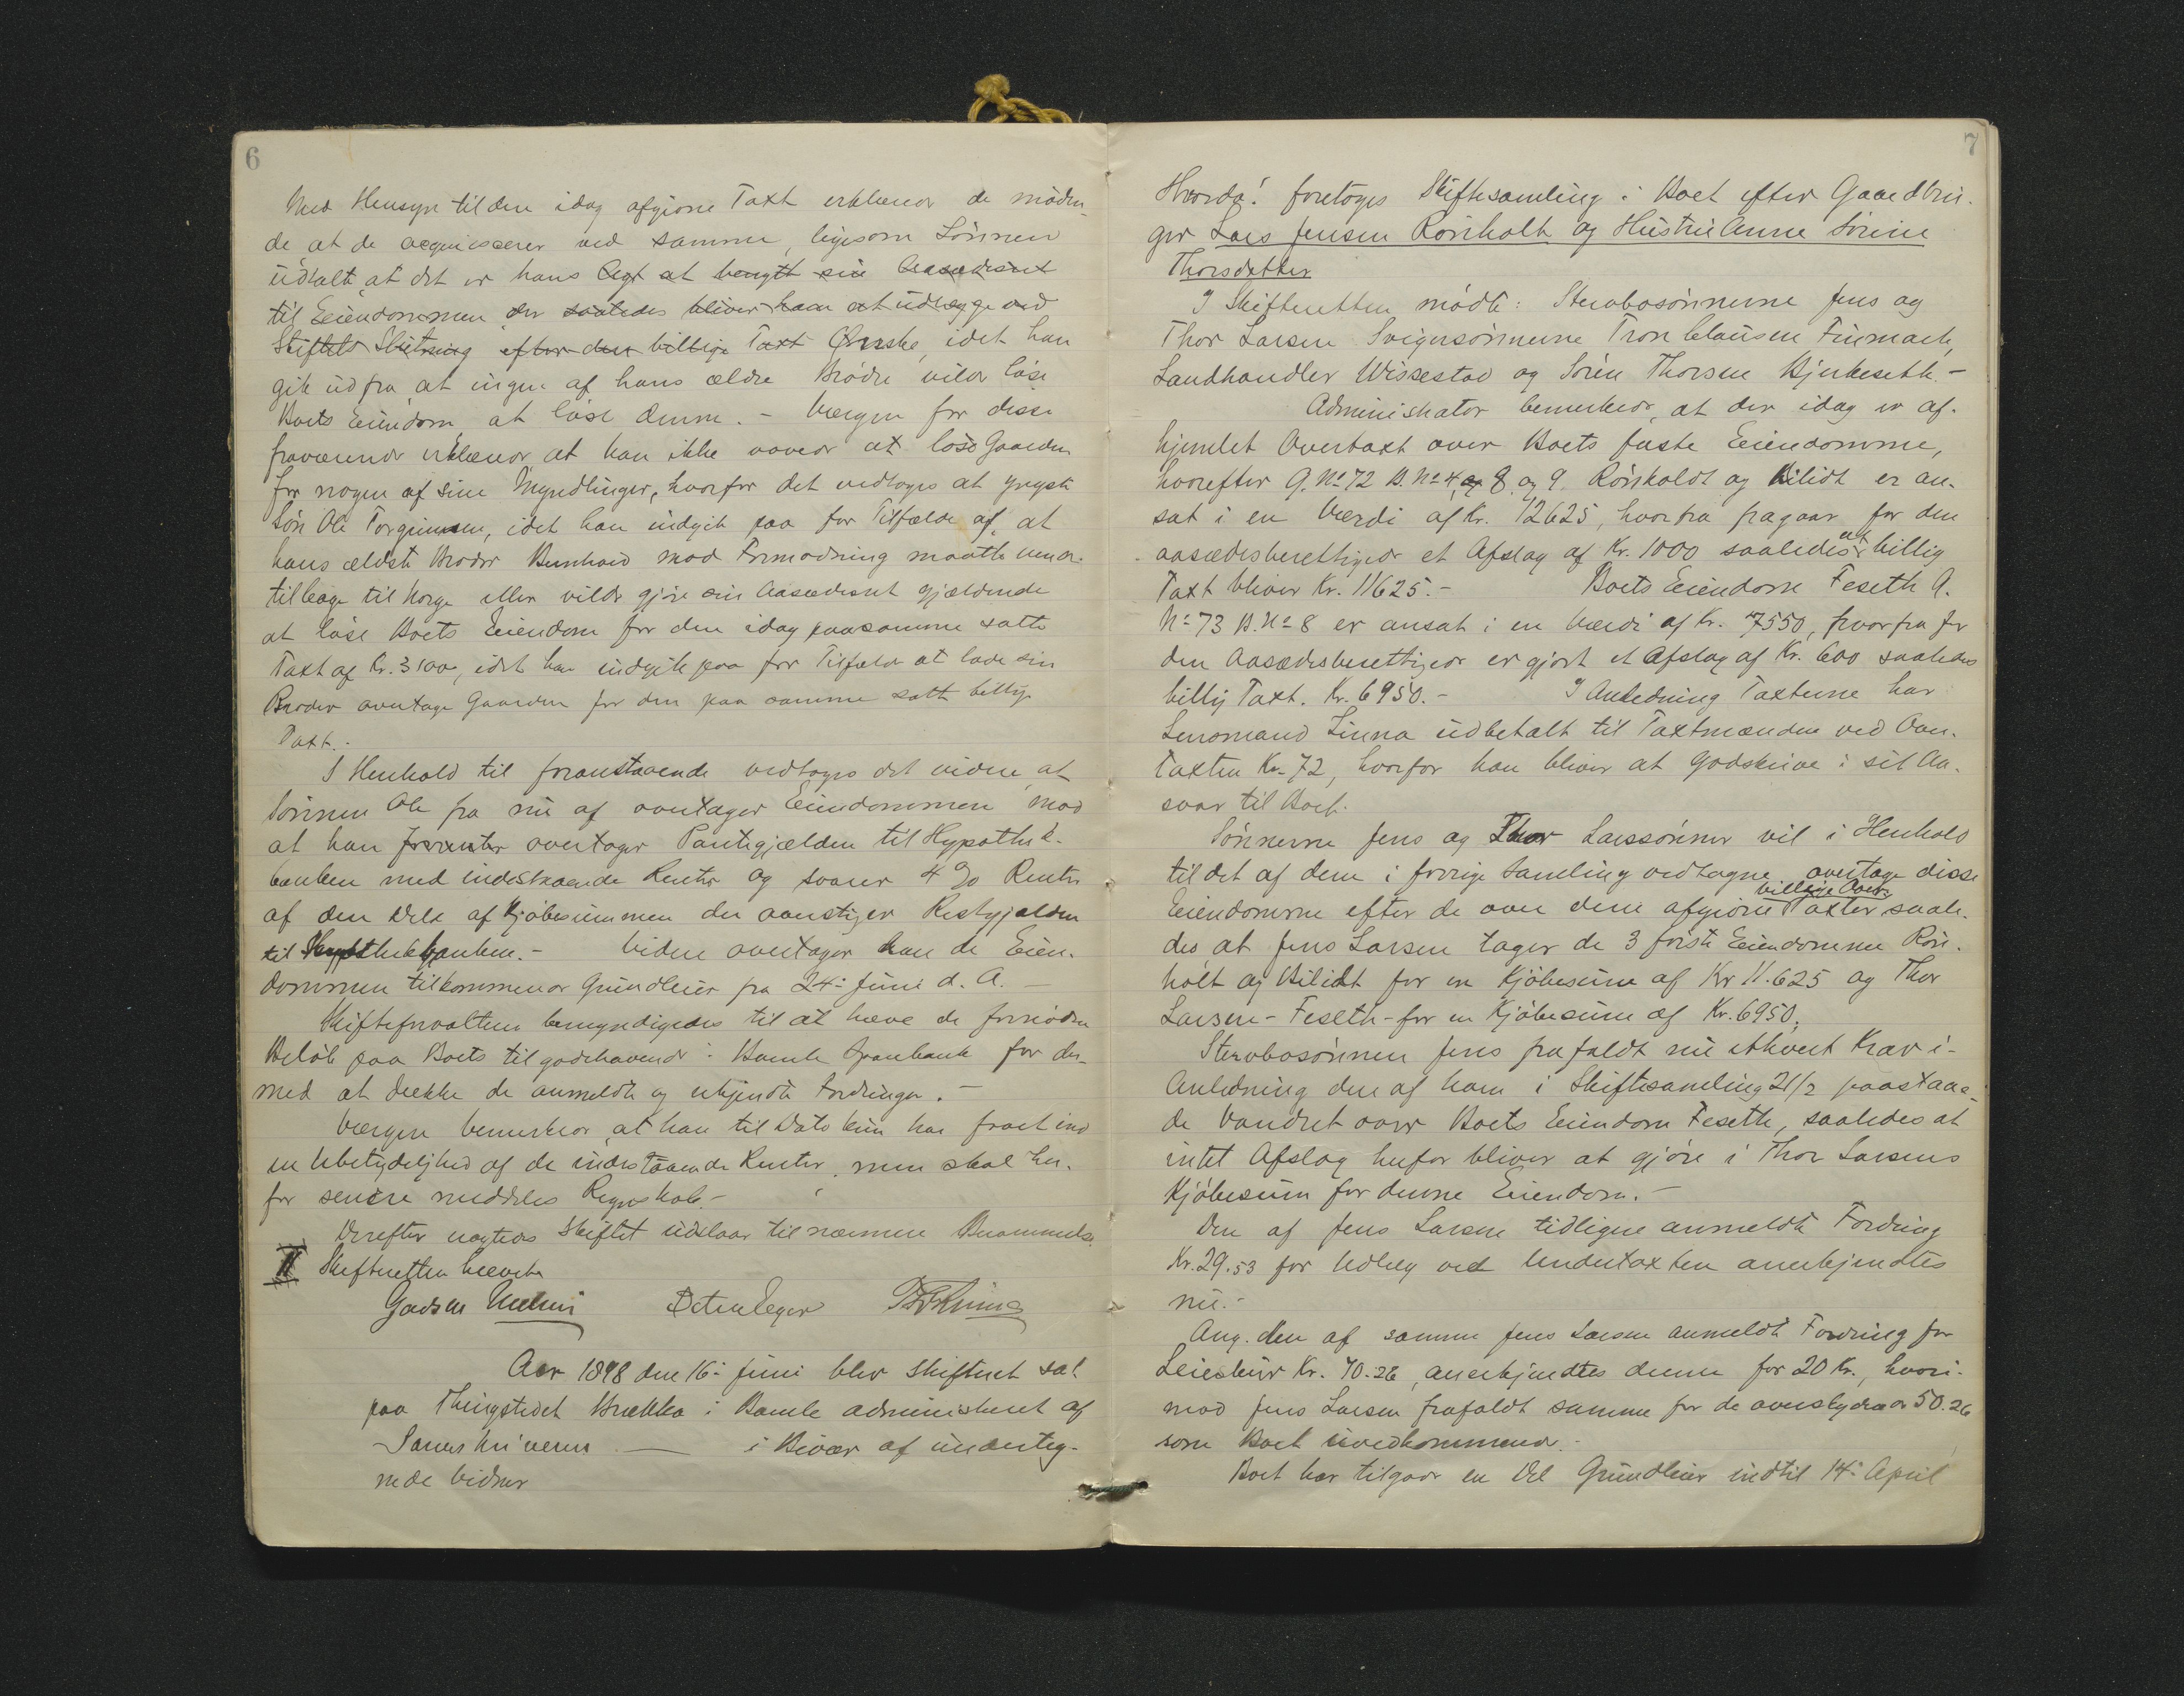 6
Med Hensyn til den idag afgivne Taxt erklærer de møden-
de, at de acquiescerer ved samme, ligesom Sønnen
udtalt, at det er hans Agt at benytte sin Aasædesret
til Eiendommen, der saaledes bliver ham at udlægge ved
Skiftets Slutning efter den billige Taxt Ønske, idet han
gik ud fra, at ingen af hans ældre Brødre vilde løse
Boets Eiendom, at løse denne. - Værgen for disse
fraværende erklærer, at han ikke vover at løse Gaarden
for nogen af sine Myndlinger, hvorfor det vedtoges at yngste
Søn Ole Torgrimsen, idet han indgik paa for Tilfælde af, at
hans ældste Broder Bernhard mod Formodning maatte vende
tilbage til Norge eller vilde gjøre sin Aasædesret gjældende
at løse Boets Eiendom for den idag paa samme satte
Taxt af Kr. 3100, idet han indgik paa for Tilfælde at lade sin
Broder overtage Gaarden for den paa samme satte billige
Taxt. -
I Henhold til foranstaaende vedtoges det videre, at
Sønnen Ole fra nu af overtager Eiendommen mod
at han overtager Pantegjælden til Hypothek-
banken med indestaaende Renter og svarer 4 % Renter
af den Del af Kjøbesummen der overstiger Restgjælden
til Hypothekbanken. - Videre overtager han de Eien-
dommen tilkommende Grundleier fra 24: Juni d. A. -
Skifteforvalteren bemyndigedes til at hæve de fornødne
Beløb paa Boets tilgodehavende i Bamle Sparebank for der-
med at dække de anmeldte og erkjendte Fordringer. -
Værgen bemerker, at han til Dato kun har faaet ind
en Ubetydelighed af de indestaaende Renter, men skal her-
for senere meddeles Regnskab. -
Derefter Skiftet udsat til nærmere Berammelse.
Skifteretten hævet
Aar 1898 den 16: Juni blev Skifteret sat
paa Thingstedet Brække i Bamle administreret af
Sorenskriveren - i Nævær af underteg-
nede Vidner
7
Hvorda! foretoges Skiftesamling i Boet efter Gaardbru-
ger Lars Jensen Rønholt og Hustru Anne Sørine
Thorsdatter
I Skifteretten mødte: Stervbosønnerne Jens og
Thor Larsen Svigersønnerne Tron Clausen Finmark,
Landhandler Wissestad og Søren Thorsen Bjerkeseth. -
Administrator bemerkede, at der idag er af-
hjemlet Overtaxt over Boets faste Eiendomme,
hvorefter G. No 72 B. No 4, 8 og 9. Rønholdt og Bilidt er an-
sat i en Værdi af Kr. 12625, hvorfra fragaar for den
aasædesberettigede et Afslag af Kr. 1000 saaledes at billig
Taxt bliver Kr. 11625. - Boets Eiendom Feseth G.
No 73 B. No 8 er ansat i en Værdi af Kr. 7550, hvorfra for
den Aasædesberettigede er gjort et Afslag af Kr. 600 saaledes
billig Taxt. Kr. 6950. - I Anledning Taxterne har
Lensmand Linna udbetalt til Taxtmændene ved Over-
taxten Kr. 72, hvorfor han bliver at godskrive i sit An-
svar til Boet.
Sønnerne Jens og Thor Larssønner vil i Henhold
til det af dem i forrige Samling vedtagne overtage disse
Eiendomme efter de over dem afgivne billige Over-Taxter saale-
des, at Jens Larsen tager de 3 første Eiendomme Røn-
holt og Bilidt for en Kjøbesum af Kr 11.625 og Thor
Larsen - Feseth - for en Kjøbesum af Kr. 6950.
Stervbosønnen Jens frafaldt nu ethvert Krav i
Anledning den af ham i Skiftesamling 21/2 paastaae-
de Vandret over Boets Eiendom Feseth, saaledes at
intet Afslag herfor bliver at gjøre i Thor Larsens
Kjøbesum for denne Eiendom. -
Den af Jens Larsen tidligere anmeldte Fordring
Kr. 29.53 for Udlæg ved Undertaxten anerkjendtes
nu. -
Ang. den af samme Jens Larsen anmeldte Fordring for
Kr. 70.26, anerkjendtes denne for 20 Kr., hvori-
mod Jens Larsen frafaldt samme for de overskydende 50.26
som Boet uvedkommende. -
Boet har tilgode en Del Grundleier indtil 14: April